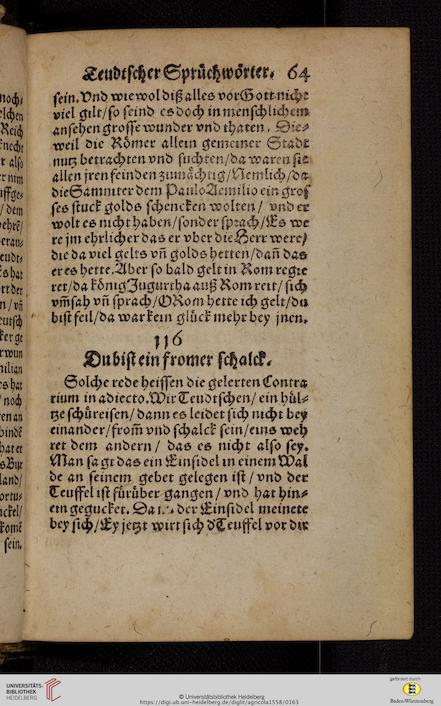 Teudtscher Sprüchwörter. 64
sein. Vnd wiewol diß alles vor Gott nicht
viel gilt/so seind es doch in menschlichem
ansehen grosse wunder vnd thaten. Die-
weil die Römer allein gemeiner Stadt
nutz betrachten vnd suchten/da waren sie
allen jren feinden zumächtig/Nemlich/da
die Samniter dem Paulo Aemilio ein gros
ses stuck golds schencken wolten/ vnd er
wolt es nicht haben/sonder sprach/Es we
re jm ehrlicher das er vber die Herr were/
die da viel gelts vñ golds hetten/dañ das
er es hette. Aber so bald gelt in Rom regie
ret/da könig Jugurtha auß Rom reit/ sich
vm̃sah vñ sprach/O Rom hette ich gelt/du
bist feil/da war kein glück mehr bey jnen.
116
Du bist ein fromer schalck.
Solche rede heissen die gelerten Contra
rium in adiecto. Wir Teudtschen/ ein hül-
tze schüreisen/ dann es leidet sich nicht bey
einander/from̃ vnd schalck sein/eins weh
ret dem andern/ das es nicht also sey.
Man sagt das ein Einsidel in einem Wal
de an seinem gebet gelegen ist/ vnd der
Teuffel ist fürüber gangen/ vnd hat hin-
ein gegucket. der Einsidel meinete
bey sich/Ey jetzt wirt sich d Teuffel vor dir
noch/
Reich
knecht
r also
er nim
/ dem
ehrē/
/ noch
sein.
UNIVERSITÄTS-
BIBLIOTHEK
HEIDELBERG
© Universitätsbibliothek Heidelberg
https://digi.ub.uni-heidelberg.de/diglit/agricola1558/0163
gefördert durch
Baden-Württemberg